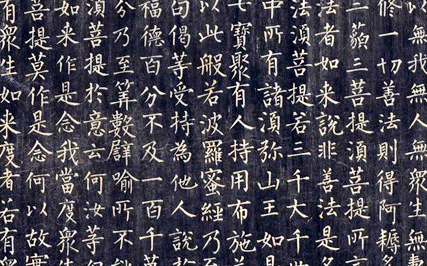 以無我無人無衆生無壽
修一切善法則得阿耨
三藐三菩提湏菩提所言
法者如来說非善法是名
法湏菩提若三千大千世
中所有諸湏弥山王如是
七寶聚有人持用布施
以此般若波羅蜜經乃至
句偈等受持為他人說於
福德百分不及一百千萬
分乃至筭數譬喻所不能
湏菩提於意云何汝等
如来作是念我當度衆生
菩提莫作是念何以故實
有衆生如来度者若有衆